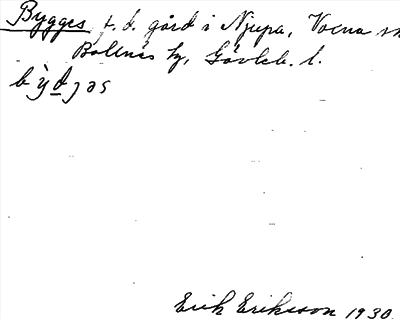 Bygges f. d. gård i Njupa, Voxna sn
Bollnäs tg, Gävleb. l.
bỳd̲jəs
Erik Eriksson 1930.